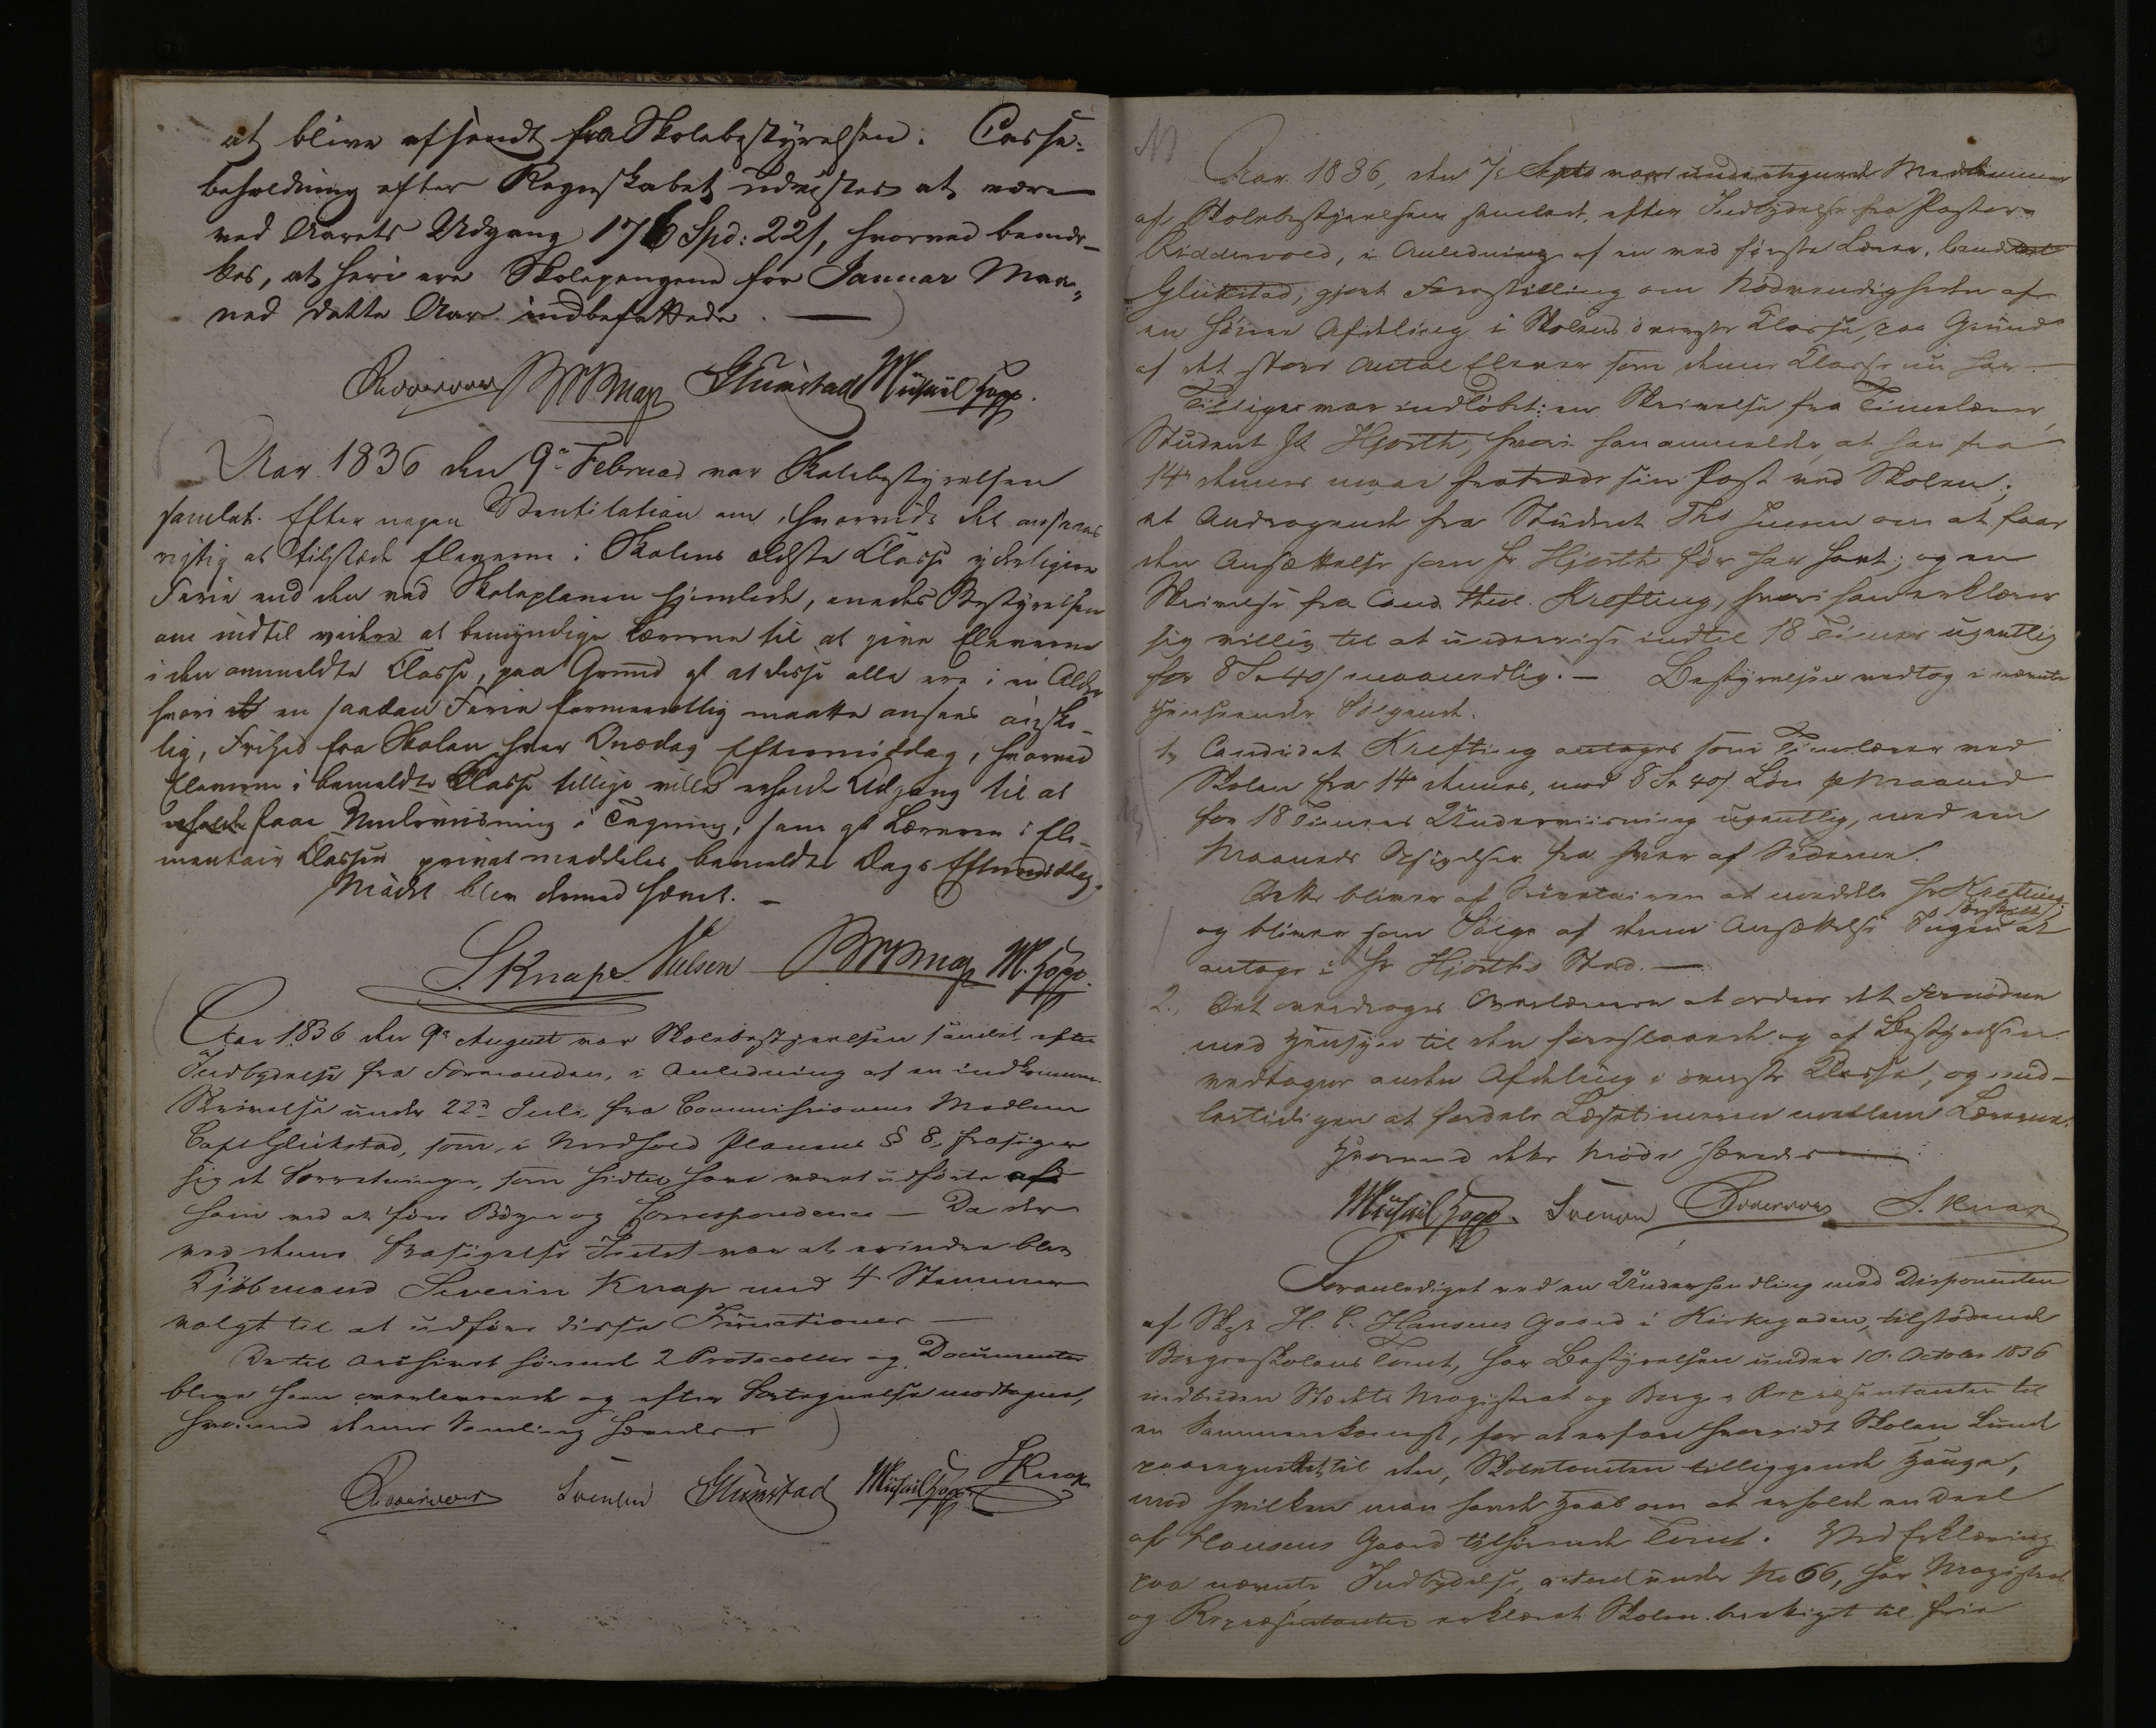 at blive afsendt fra Skolebestyrelsen. Casse-
beholdning efter Regnskabet udvistes at være
ved Aarets Udgang 176 Spd: 22 s, hvorved bemær-
kes, at heri ere Skolepengene for Januar Maa-
ned dette Aar indbefattede. —
Riddervold Glückstad Michael Hopp.
Aar 1836 den 9de Februar var Skolebestyrelsen
samlet. Efter nogen Ventilation om, hvorvidt det ansees
rigtig at tilstede Eleverne i Skolens ældste Classe yderligere
Ferie end den ved Skoleplanen hjemlede, enedes Bestyrelsen
om indtil videre at bemyndige Lærerne til at give Eleverne
i den anmeldte Classe, paa Grund af at disse alle ere i en Alder
hvori en saadan Ferie formeentlig maatte ansees ønske-
lig, Frihed fra Skolen hver Onsdag Eftermiddag, hvorved
Eleverne i bemeldte Classe tillige ville erholde Adgang til at
faae Underviisning i Tegning, som af Læreren i Ele-
mentair Classen privat meddeles bemeldte Dags Eftermiddag.
Mødet blev dermed hævet. —
S. Knap Nielsen M. Hopp.
Aar 1836 den 9de August var Skolebestyrelsen samlet efter
Indbydelse fra Formanden, i Anledning af en indkommen
Skrivelse under 22de Juli fra Commissionens Medlem
Capt Glückstad, som, i Medhold Planens § 8, frasiger
sig de Forretninger, som hidtil have været udførte af
ham ved at føre Bøger og Correspondence — Da der
ved denne Frasigelse Intet var at erindre blev
Kjøbmand Severin Knap med 4 Stemmer
valgt til at udføre disse Functioner —
De til Archivet hørende 2 Protocoller og Documenter
bleve ham overleverede og efter Fortegnelse modtagne,
hvormed denne Samling hævedes
Riddervold Svensen Glückstad Michael Hopp. S Knap
Aar 1836, den 7de Septb vare undertegnede Medlemmer
af Skolebestyrelsen samlede efter Indbydelse fra Pastor
Riddervold, i Anledning af en ved første Lærer, Cand
Glückstad, gjort Forestilling om Nødvendigheden af
en høiere Afdeling i Skolens øverste Classe, paa Grund
af det store Antal Elever som denne Classe nu har. —
Tilliger var indløbet: en Skrivelse fra Timelærer,
Student Hr Hjorth, hvori han anmelder, at han fra
14de dennes maae fratræde sin Post ved Skolen;
et Andragende fra Student Ths om at faae
den Ansættelse som Hr Hjorth før har havt; og en
Skrivelse fra Cand. theol. Krefting, hvori han erklærer
sig villig til at undervise indtil 18 Timer ugentlig
for 8 Sp 40 s maanedlig. — Bestyrelsen vedtog i nævnte
Henseende Følgende.
1, Candidat Krefting antages som Timelærer ved
Skolen fra 14de dennes, mod 8 Sp 40 s Løn pr Maaned
for 18 Timers Underviisning ugentlig, med een
Maaneds Opsigelse fra hver af Siderne.
Dette bliver af Secretairen at meddele Hr Krefting
og bliver som Følge af denne Ansættelse Ingen særskilt at
antage i Hr Hjorths Sted. —
2., Det overdrages Overlæreren at ordne det Fornødne
med Hensyn til den foreslaaede og af Bestyrelsen
vedtagne anden Afdeling i øverste Classe, og imid-
lertidigen at fordele Læsetimerne mellem Lærerne.
Hvormed dette Møde hævedes —
Michael Hopp. Svensen Riddervold S. Knap
Foranlediget ved en Underhandling med Disponenten
af Skpr H. C. Hansens Gaard i Kirkegaden, tilstødende
Borgerskolens Tomt, har Bestyrelsen under 10. October 1836
indbudne Stædets Magistrat og Borger Repræsentanter til
en Sammenkomst, for at erfare hvorvidt Skolen kunde
paaregne til den, Skoletomten tilliggende Hauge,
med hvilken man havde Haab om at erholde en Deel
af Hansens Gaard tilhørende Tomt. Ved Erklæring
paa nævnte Indbydelse, acteret under No 66, har Magistrat
og Repræsentanter erklæret Skolen berettiget til frie